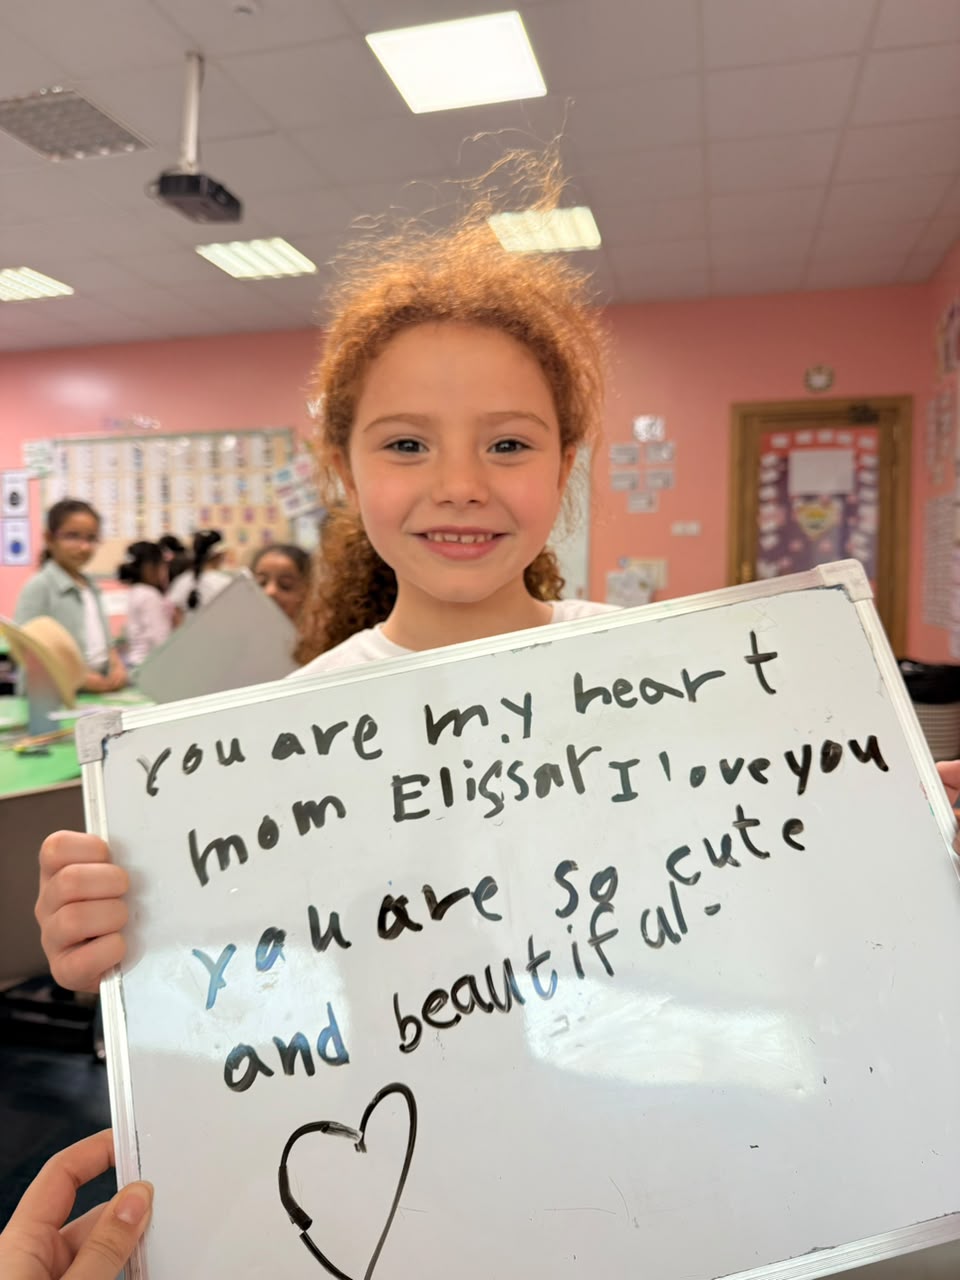 you are my heart
mom Elissar I love you
you are so cute
and beautiful.